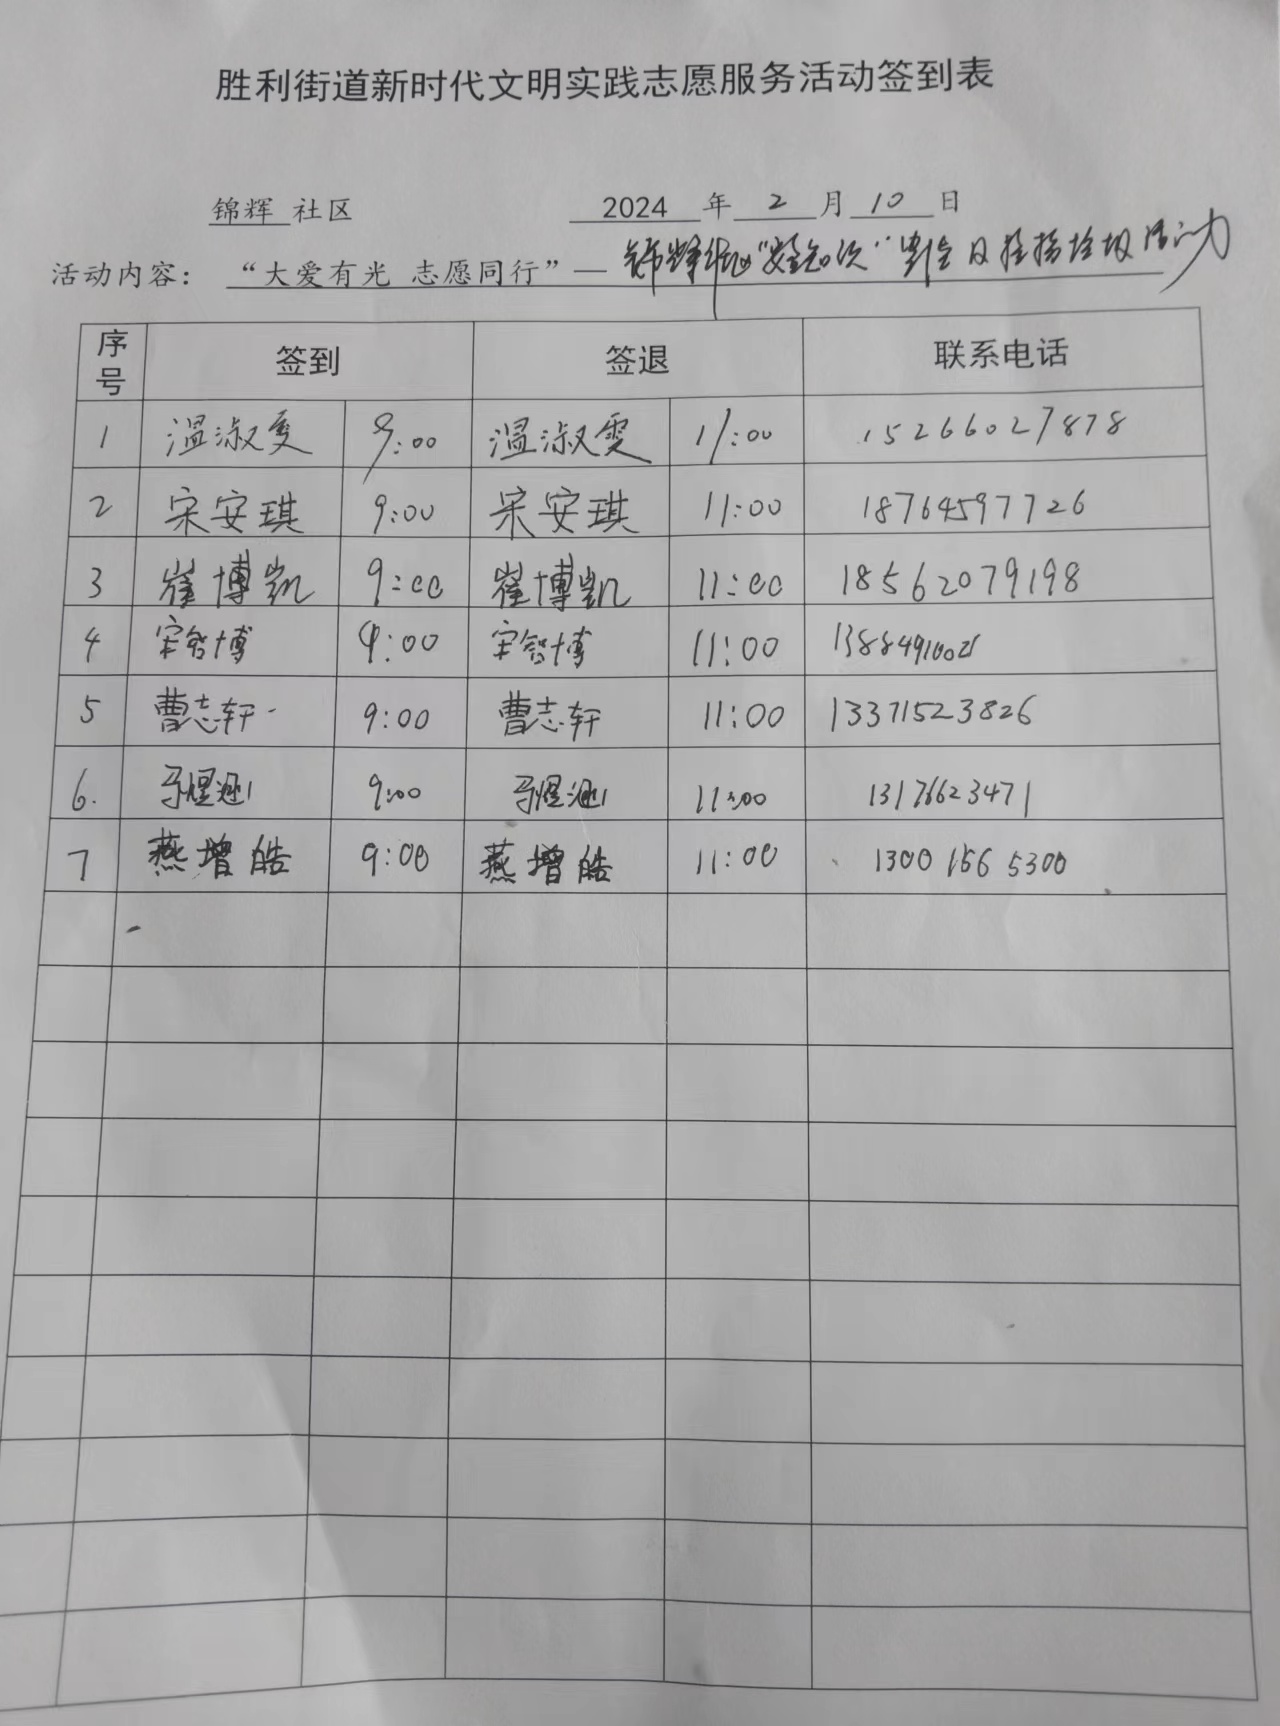 胜利街道新时代文明实践志愿服务活动签到表
锦辉 社区 2024 年 2 月 10 日
活动内容： “大爱有光 志愿同行”— 锦辉社区“安全知识”宣传及捡拾垃圾活动
序号 签到 签退 联系电话
1 温淑雯 9:00 温淑雯 11:00 15266027878
2 宋安琪 9:00 宋安琪 11:00 18764597726
3 崔博凯 9:00 崔博凯 11:00 18562079198
4 宋智博 9:00 宋智博 11:00 13884910021
5 曹志轩 9:00 曹志轩 11:00 13371523826
6. 马煜 9:00 马煜 11:00 13176623471
7 燕增皓 9:00 燕增皓 11:00 1300 156 5300